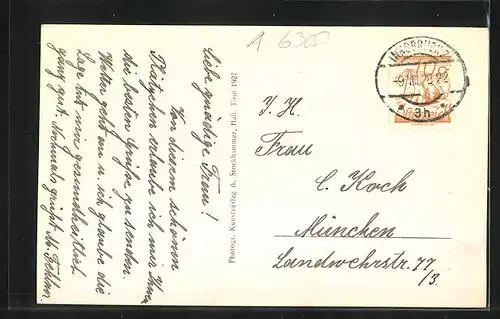 A 6302
Liebe gnädige Frau!
Von diesem schönen
Plätzchen erlaube ich mir Ihnen
die besten Grüße zu senden.
Wetter geht an u. ich glaube die
Lage tut mir gesundheitlich
ganz gut. Nochmals grüßt
Photogr. Kunstverlag A. Stockhammer, Hall, Tirol 1927
INNSBRUCK 2
* 3h *
I. H.
Frau
C. Koch
München
Landwehrstr. 77
/3.